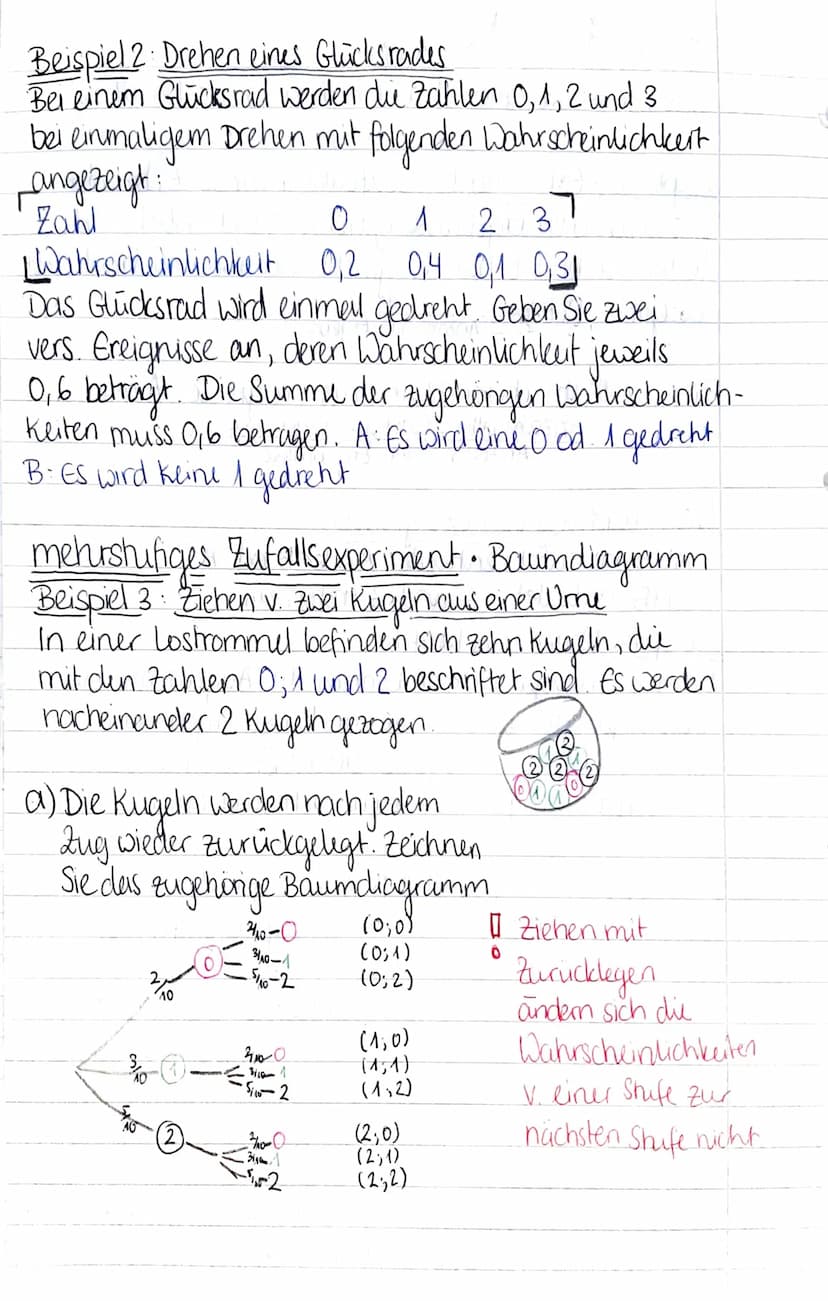 Beispiel 2: Drehen eines Glücksrades
Bei einem Glücksrad werden die Zahlen 0,1,2 und 3
bei einmaligem Drehen mit folgenden Wahrscheinlichkeit
angezeigt:
Zahl 0 1 2 3
Wahrscheinlichkeit 0,2 0,4 0,1 0,3
Das Glücksrad wird einmal gedreht. Geben Sie zwei
vers. Ereignisse an, deren Wahrscheinlichkeit jeweils
0,6 beträgt. Die Summe der zugehörigen Wahrscheinlich-
keiten muss 0,6 betragen. A: Es wird eine 0 od. 1 gedreht
B: Es wird keine 1 gedreht
mehrstufiges Zufallsexperiment · Baumdiagramm
Beispiel 3: Ziehen v. zwei Kugeln aus einer Urne
In einer Lostrommel befinden sich zehn Kugeln, die
mit den Zahlen 0;1 und 2 beschriftet sind. Es werden
nacheinander 2 Kugeln gezogen.
2
1 1
2 2 2
0 1 1 0
a) Die Kugeln werden nach jedem
Zug wieder zurückgelegt. Zeichnen
Sie das zugehörige Baumdiagramm
2/10 0 2/10 - 0 (0;0)
3/10 - 1 (0;1)
5/10 - 2 (0;2)
3/10 1 2/10 - 0 (1;0)
3/10 - 1 (1;1)
5/10 - 2 (1;2)
5/10 2 2/10 - 0 (2;0)
3/10 1 (2;1)
5/10 - 2 (2;2)
! Ziehen mit
Zurücklegen
ändern sich die
Wahrscheinlichkeiten
v. einer Stufe zur
nächsten Stufe nicht